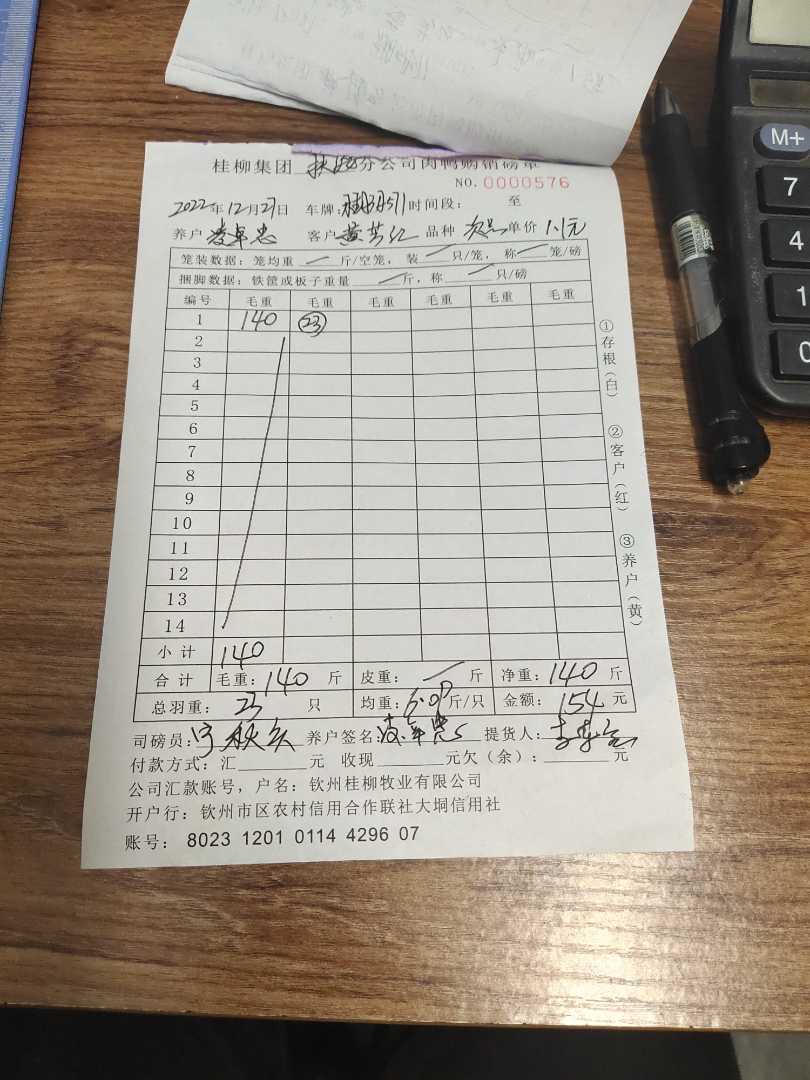 桂柳集团 分公司肉鸭购销磅单
NO. 0000576
2022年12月27日 车牌: 时间段: 至
养户 凌卓忠 客户 黄艺红 品种 次品 单价 1.1元
笼装数据: 笼均重 — 斤/空笼, 装 — 只/笼, 称 — 笼/磅
捆脚数据: 铁筐或板子重量 — 斤, 称 — 只/磅
编号 毛重 毛重 毛重 毛重 毛重 毛重
1 140 23
2
3
4
5
6
7
8
9
10
11
12
13
14
小计 140
合计 毛重: 140 斤 皮重: — 斤 净重: 140 斤
总羽重: 23 只 均重: 6.09 斤/只 金额: 154 元
司磅员: 养户签名: 提货人:
付款方式: 汇 元 收现 元欠(余): 元
公司汇款账号, 户名: 钦州桂柳牧业有限公司
开户行: 钦州市区农村信用合作联社大垌信用社
账号: 8023 1201 0114 4296 07
①存根(白) ②客户(红) ③养户(黄)
M+
7
4
1
0